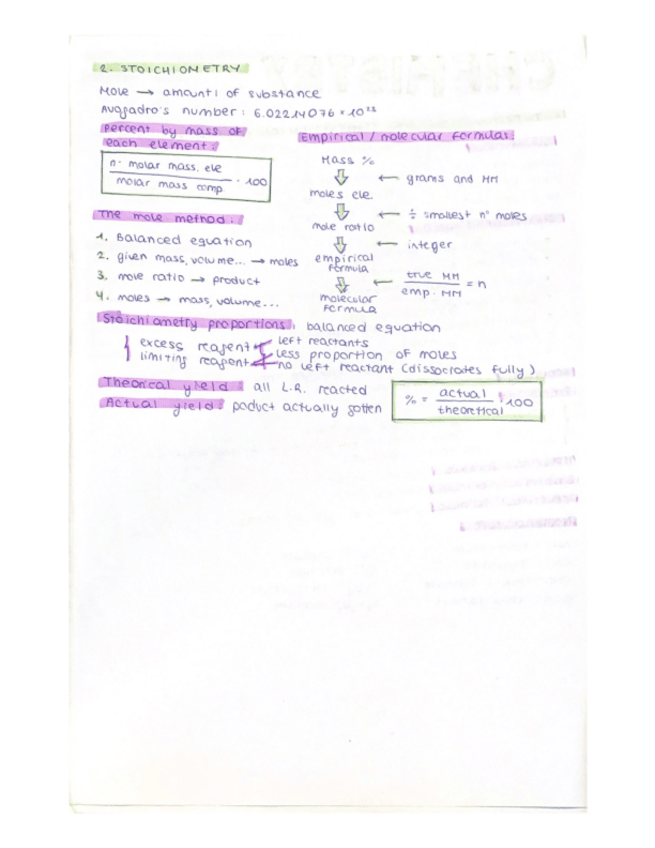 2. STOICHIOMETRY
Mole → amount of substance
Avogadro's number: 6.02214076 × 10²³
Percent by mass of
each element:
n · molar mass. ele
molar mass comp. · 100
The mole method:
1. Balanced equation
2. given mass, volume... → moles
3. mole ratio → product
4. moles → mass, volume...
Empirical / molecular formulas:
Mass %
← grams and MM
moles ele.
← ÷ smallest nº moles
mole ratio
← integer
empirical
formula
← true MM
emp. MM = n
molecular
formula
Stoichiometry proportions: balanced equation
excess reagent left reactants
less proportion of moles
limiting reagent no left reactant (dissocrates fully)
Theorical yield: all L.R. reacted
Actual yield: poduct actually gotten
% = actual
theoretical · 100